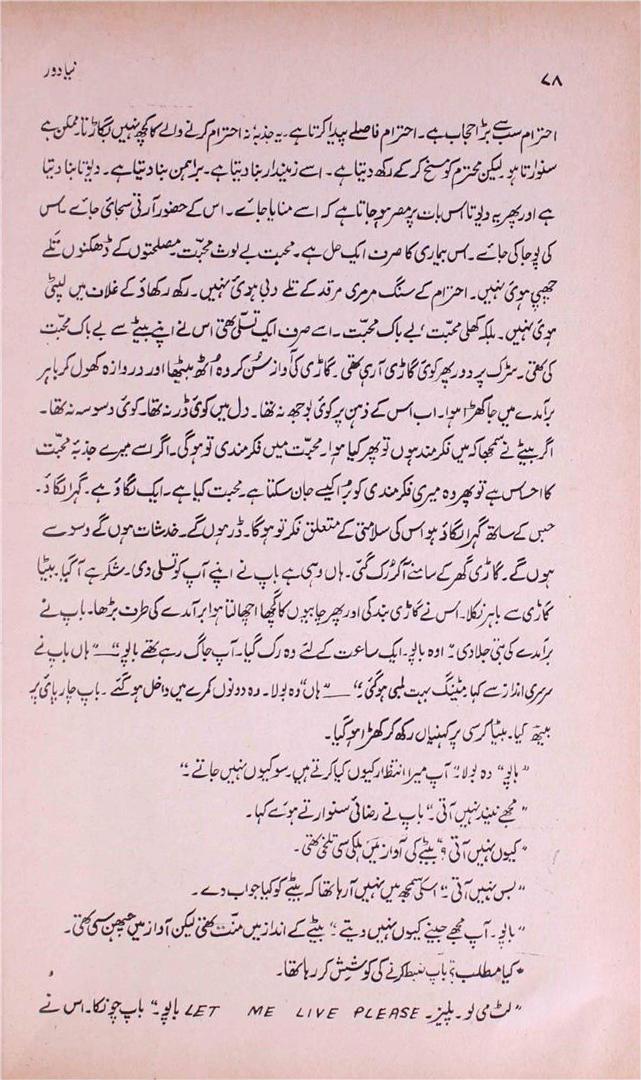 ۷۸ نیا دور
احترام سب سے بڑا حجاب ہے۔ احترام فاصلے پیدا کرتا ہے۔ یہ جذبہ نہ احترام کرنے والے کا کچھ نہیں بگاڑتا۔ ممکن ہے
سنوارتا ہو لیکن محترم کو مسخ کر کے رکھ دیتا ہے۔ اسے زمیندار بنا دیتا ہے۔ براہمن بنا دیتا ہے۔ دیوتا بنا دیتا
ہے اور پھر یہ دیوتا اس بات پر مصر ہو جاتا ہے کہ اسے منایا جائے۔ اس کے حضور آرتی سجائی جائے۔ اس
کی پوجا کی جائے۔ اس بیماری کا صرف ایک حل ہے۔ محبت بے لوث محبت۔ مصلحتوں کے ڈھکنوں تلے
چھپی ہوئی نہیں۔ احترام کے سنگ مرمری مرقد کے تلے دبی ہوئی نہیں۔ رکھ رکھاؤ کے غلاف میں لپٹی
ہوئی نہیں۔ بلکہ کھلی محبت، بے باک محبت۔ اسے صرف ایک تسلی تھی اس نے اپنے بیٹے سے بے باک محبت
کی تھی۔ سڑک پر دور پھر کوئی گاڑی آ رہی تھی۔ گاڑی کی آواز سُن کر وہ اُٹھ بیٹھا اور دروازہ کھول کر باہر
برآمدے میں جا کھڑا ہوا۔ اب اس کے ذہن پر کوئی بوجھ نہ تھا۔ دل میں کوئی ڈر نہ تھا۔ کوئی وسوسہ نہ تھا۔
اگر بیٹے نے سمجھا کہ میں فکرمند ہوں تو پھر کیا ہوا۔ محبت میں فکرمندی تو ہو گی۔ اگر اسے میرے جذبۂ محبت
کا احساس ہے تو پھر وہ میری فکرمندی کو بُرا کیسے جان سکتا ہے۔ محبت کیا ہے۔ ایک لگاؤ ہے۔ گہرا لگاؤ۔
جس کے ساتھ گہرا لگاؤ ہو اس کی سلامتی کے متعلق فکر تو ہو گا۔ ڈر ہوں گے۔ خدشات ہوں گے وسوسے
ہوں گے۔ گاڑی گھر کے سامنے آ کر رُک گئی۔ ہاں وہی ہے باپ نے اپنے آپ کو تسلی دی۔ شکر ہے آ گیا۔ بیٹا
گاڑی سے باہر نکلا۔ اس نے گاڑی بند کی اور پھر چابیوں کا گچھا اچھالتا ہوا برآمدے کی طرف بڑھا۔ باپ نے
برآمدے کی بتی جلا دی۔ "اوہ بالو۔ ایک ساعت کے لئے وہ رک گیا۔ آپ جاگ رہے تھے بالو"۔ "—— ہاں باپ نے
سرسری انداز سے کہا۔ میٹنگ بہت لمبی ہو گئی"۔ "—— ہاں" وہ بولا۔ وہ دونوں کمرے میں داخل ہو گئے۔ باپ چارپائی پر
بیٹھ گیا۔ بیٹا کرسی پر کہنیاں رکھ کر کھڑا ہو گیا۔
"بالو" وہ بولا۔ "آپ میرا انتظار کیوں کیا کرتے ہیں۔ سو کیوں نہیں جاتے۔"
"مجھے نیند نہیں آتی۔" باپ نے رضائی سنوارتے ہوئے کہا۔
"کیوں نہیں آتی؟" بیٹے کی آواز میں ہلکی سی تلخی تھی۔
"بس نہیں آتی۔" اسکی سمجھ میں نہیں آ رہا تھا کہ بیٹے کو کیا جواب دے۔
"بالو۔ آپ مجھے جینے کیوں نہیں دیتے۔" بیٹے کے انداز میں منّت تھی لیکن آواز میں چبھن سی تھی۔
"کیا مطلب؟" باپ ضبط کرنے کی کوشش کر رہا تھا۔
"لٹ می لو۔ پلیز۔ LET ME LIVE PLEASE بالو۔" باپ چونکا۔ اس نے